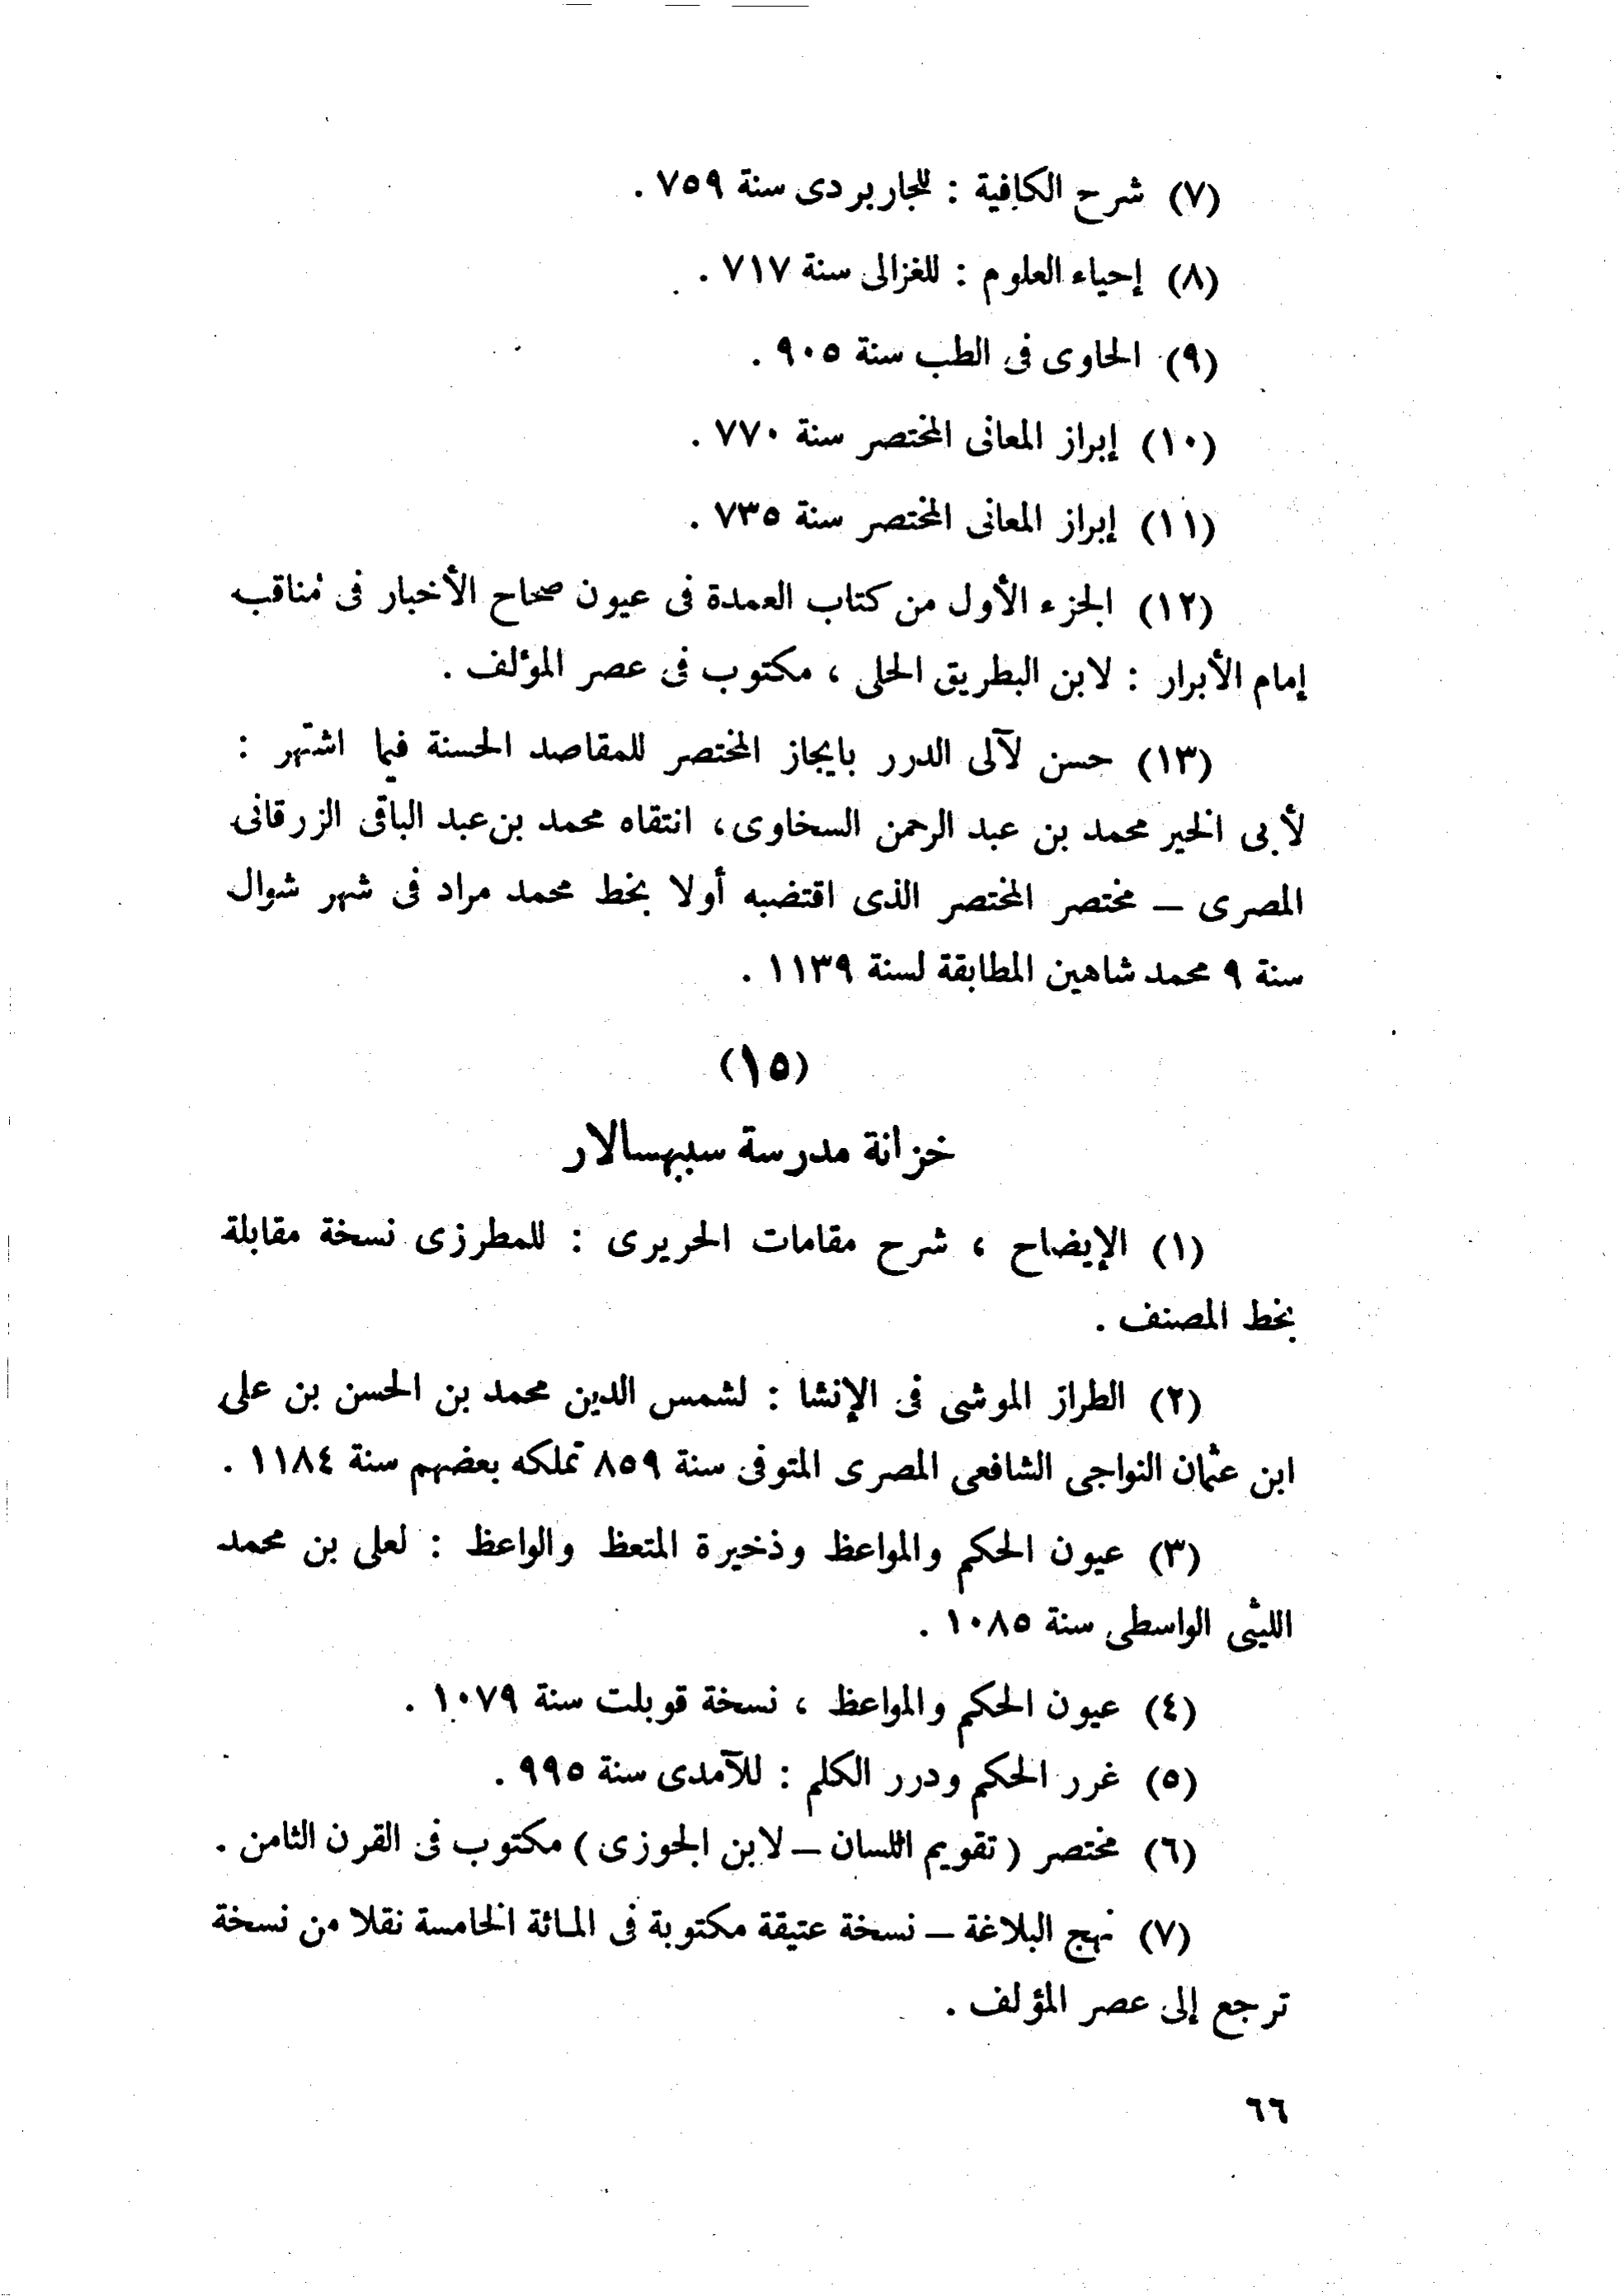 (٧) شرح الكافية : للجاربردى سنة ٧٥٩ .
(٨) إحياء العلوم : للغزالى سنة ٧١٧ .
(٩) الحاوى فى الطب سنة ٩٠٥ .
(١٠) إبراز المعانى المختصر سنة ٧٧٠ .
(١١) إبراز المعانى المختصر سنة ٧٣٥ .
(١٢) الجزء الأول من كتاب العمدة فى عيون صحاح الأخبار فى مناقب
إمام الأبرار : لابن البطريق الحلى ، مكتوب فى عصر المؤلف .
(١٣) حسن لآلى الدرر بايجاز المختصر للمقاصد الحسنة فيما اشتهر :
لأبى الخير محمد بن عبد الرحمن السخاوى ، انتقاه محمد بن عبد الباقى الزرقانى
المصرى – مختصر المختصر الذى اقتضبه أولا بخط محمد مراد فى شهر شوال
سنة ٩ محمد شاهين المطابقة لسنة ١١٣٩ .
(١٥)
خزانة مدرسة سبهسالار
(١) الإيضاح ، شرح مقامات الحريرى : للمطرزى نسخة مقابلة
بخط المصنف .
(٢) الطراز الموشى فى الإنشا : لشمس الدين محمد بن الحسن بن على
ابن عثمان النواجى الشافعى المصرى المتوفى سنة ٨٥٩ تملكه بعضهم سنة ١١٨٤ .
(٣) عيون الحكم والمواعظ وذخيرة المتعظ والواعظ : لعلى بن محمد
الليثى الواسطى سنة ١٠٨٥ .
(٤) عيون الحكم والمواعظ ، نسخة قوبلت سنة ١٠٧٩ .
(٥) غرر الحكم ودرر الكلم : للآمدى سنة ٩٩٥ .
(٦) مختصر ( تقويم اللسان – لابن الجوزى ) مكتوب فى القرن الثامن .
(٧) نهج البلاغة – نسخة عتيقة مكتوبة فى المائة الخامسة نقلا من نسخة
ترجع إلى عصر المؤلف .
٦٦